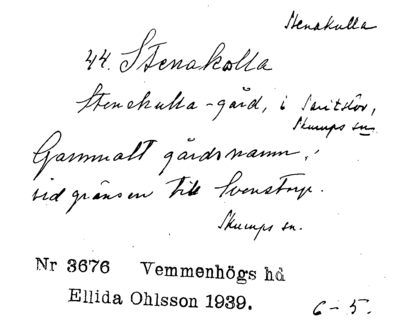 Stenakulla
44. Stenakolla
Stenakulla-gård, i Saritslöv,
Skurups sn
Gammalt gårdsnamn,
vid gränsen till Svenstorp.
Skurups sn.
Nr 3676 Vemmenhögs hd
Ellida Ohlsson 1939.
6-5.